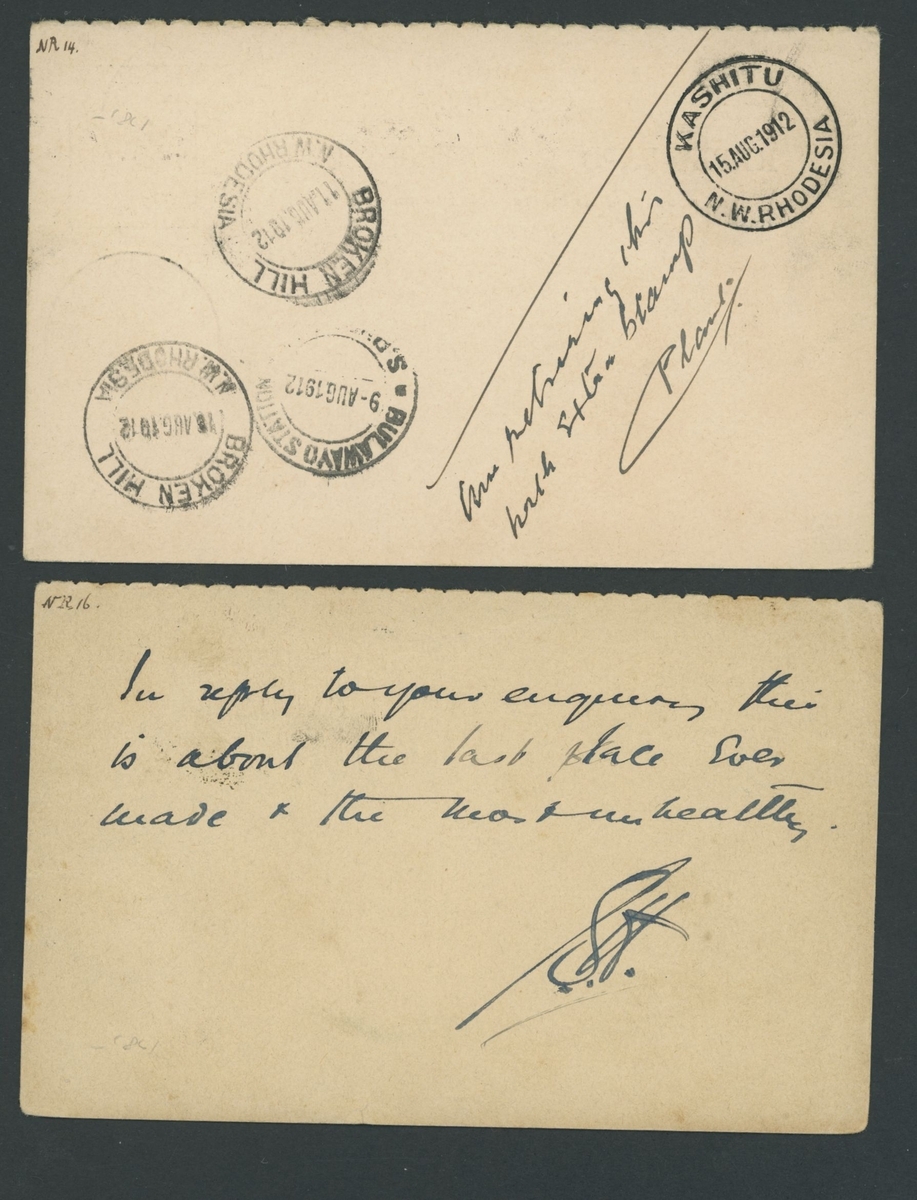 NR 14.
KASHITU
15.AUG.1912
N.W.RHODESIA
N.W.RHODESIA
11.AUG.1912
BROKEN HILL
N.W.RHODESIA
AUG.1912
BROKEN HILL
BULAWAYO STATION
9-AUG1912
Am returning this
with Extra Stamp
NR 16.
In reply to your enquiry this
is about the last place Ever
made & the most unhealthy.